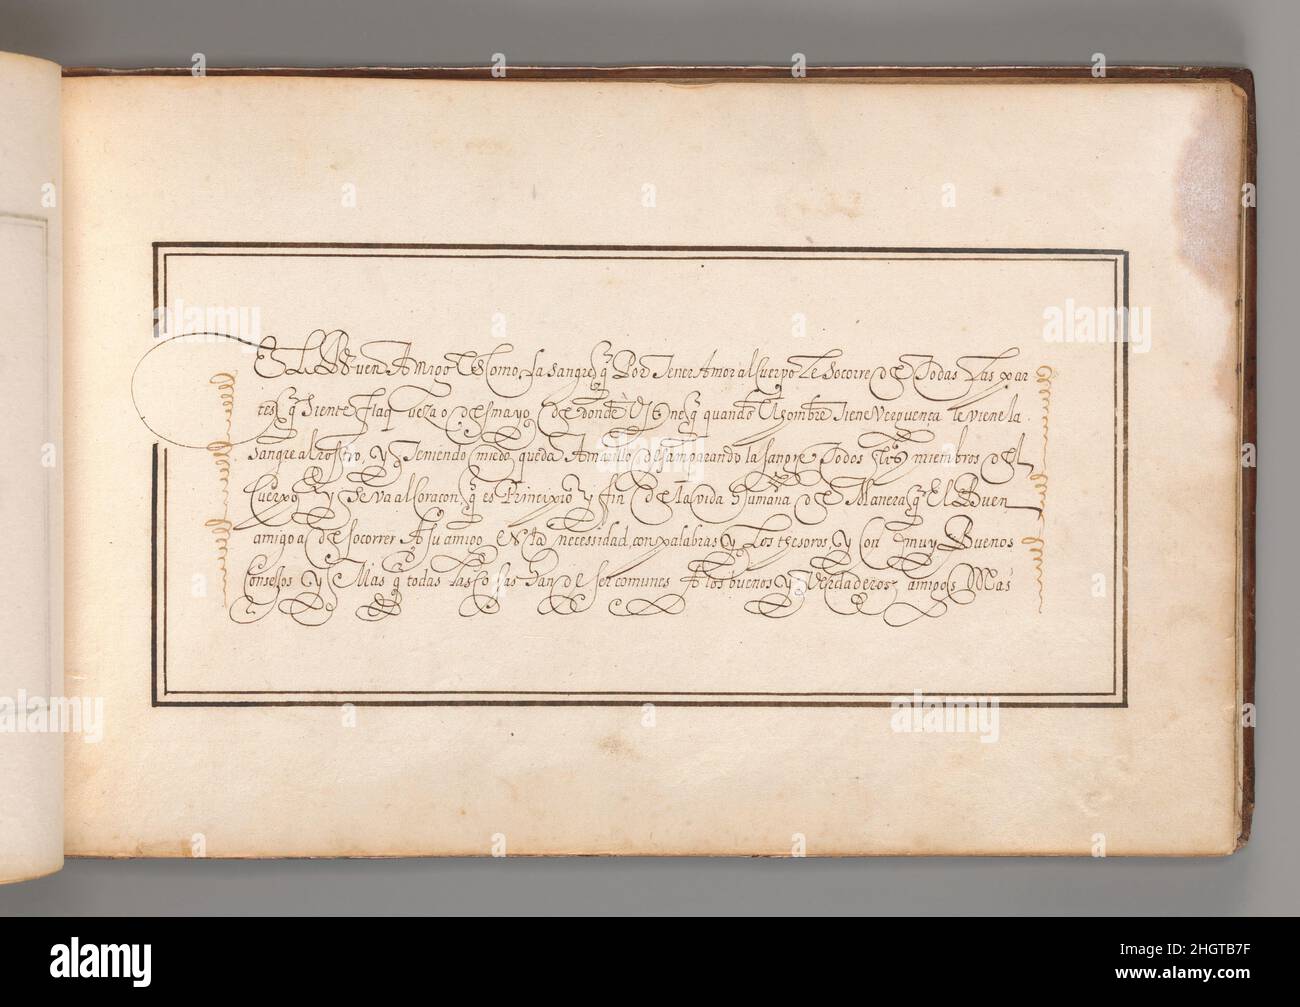 El Buen Amigo Es Como la sangre q̃ Por Tener Amor al Cuerpo Le Socorre de Todas Las par
tes q̃ Siente flaqueza o desmayo de donde Vie ne q̃ quando El hombre Tiene Verguença le viene la
Sangre al Rostro, y Teniendo miedo queda Amarillo desamparando la sangre Todos Los miembros del
Cuerpo y se va al Coraçon q̃ es Principio y fin de la Vida humana de Manera q̃ El Buen
amigo a de socorrer A su amigo en la necessidad, con palabras y Los thesoros, y Con muy Buenos
Consejos y Más q̃ todas Las Cosas han de ser comunes A los buenos y Verdaderos amigos Mas
alamy
Image ID: 2HGTB7F
www.alamy.com